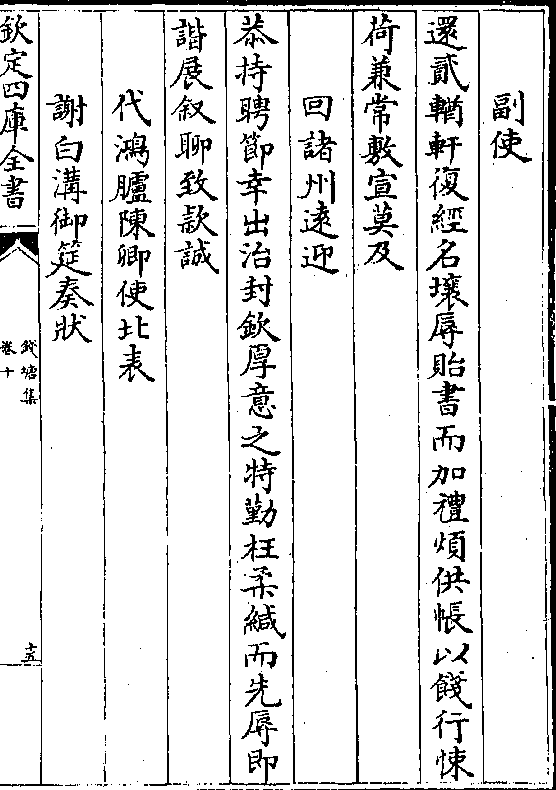 副使
還貳輶軒復經名壤辱貽書而加禮煩供帳以餞行悚
荷兼常敷宣莫及
回諸州逺迎
恭持聘節幸出治封欽厚意之特勤枉柔緘而先辱即
諧展叙聊致款誠
代鴻臚陳卿使北表
謝白溝御筵奏狀
欽定四庫全書
錢塘集
卷十
十五